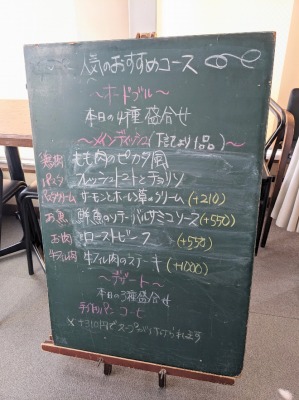 人気のおすすめコース
～オードブル～
本日の4種盛合せ
～メインディッシュ(下記より1品)～
鶏肉 もも肉のピカタ風
パスタ フレッシュトマトとチョリソ
パスタクリーム サーモンとホーレン草のクリーム (+210)
お魚 鮮魚のソテーバルサミコソース (+550)
お肉 ローストビーフ (+550)
牛フィレ肉 牛フィレ肉のステーキ (+1000)
～デザート～
本日の3種盛合せ
パン コーヒー
※+310円でスープがつけられます